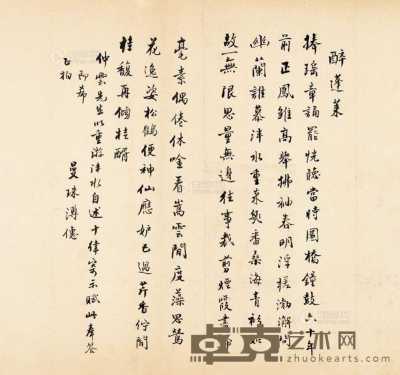 醉蓬萊
捧瑤章誦罷恍瞻當時圜橋鐘鼓六十年
前正鳳雛高舉拂袖春明浮槎渤澥
幽蘭誰慕泮水重來幾番桑海青衫如
故一無限思量無邊往事裁剪煙霞書
毫素偶倦休唫看嵩雲閒度藻思鶯
花逸姿松鶴便神仙應妒已過芹香佇聞
桂馥再傾桂醑
仲雲先生以重游泮水自述十律寄示賦此奉答
即希
正拍
曼殊溥儒
艺术网
zhuokearts.com